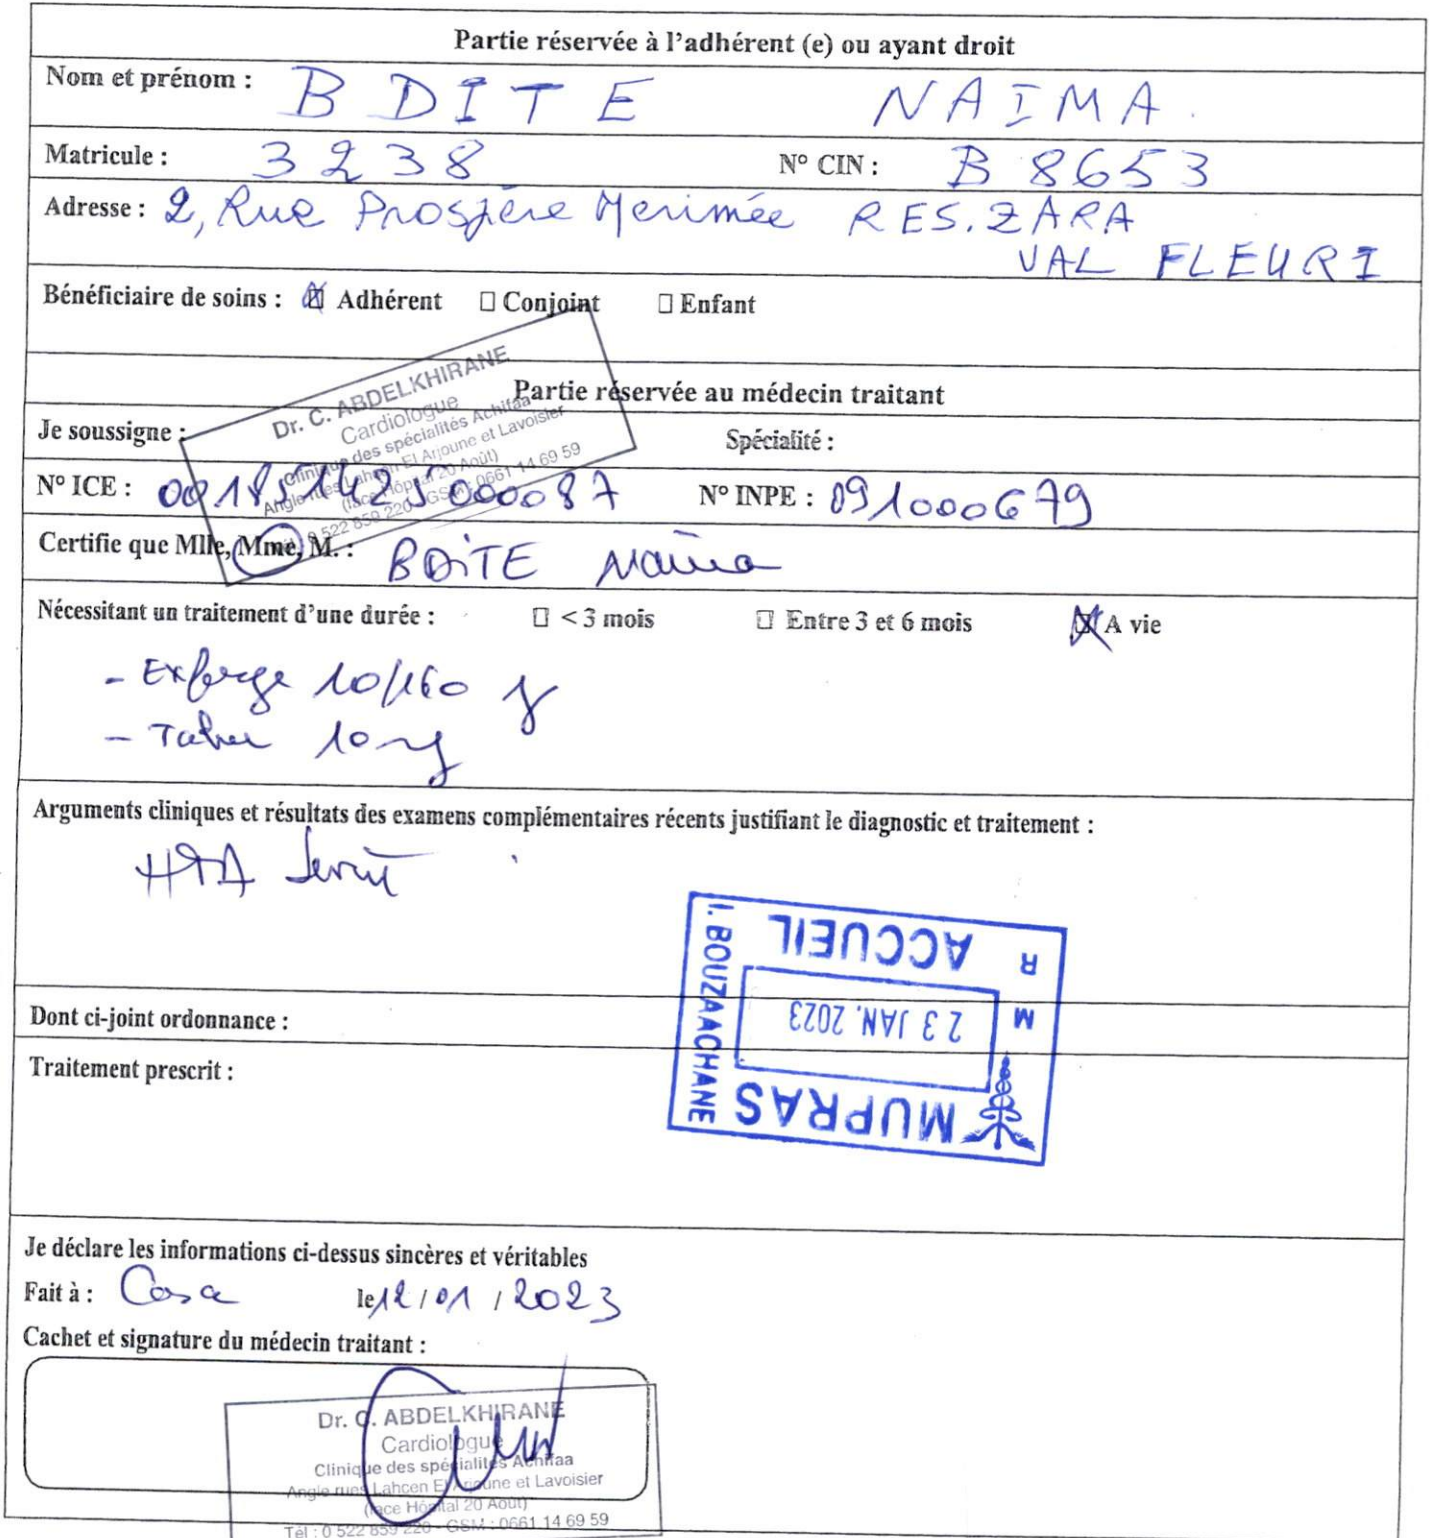 Partie réservée à l'adhérent (e) ou ayant droit
Nom et prénom : BDITE NAIMA.
Matricule : 3238 N° CIN : B 8653
Adresse : 2, Rue Prospère Merimée RES. ZARA
VAL FLEURI
Bénéficiaire de soins : ☒ Adhérent ☐ Conjoint ☐ Enfant
Partie réservée au médecin traitant
Dr. C. ABDELKHIRANE
Cardiologue
Clinique des spécialités Achifaa
Angle rues Lahcen El Arjoune et Lavoisier
(face Hôpital 20 Août)
Tél : 0 522 859 220 - GSM : 0661 14 69 59
Je soussigne : Spécialité :
N° ICE : 001851425000087 N° INPE : 091000679
Certifie que Mlle, Mme, M. : BDITE Naima
Nécessitant un traitement d'une durée : ☐ < 3 mois ☐ Entre 3 et 6 mois ☒ A vie
- Exforge 10/160
- 10 mg
Arguments cliniques et résultats des examens complémentaires récents justifiant le diagnostic et traitement :
HTA
Dont ci-joint ordonnance :
Traitement prescrit :
MUPRAS
23 JAN. 2023
R M
ACCUEIL
I. BOUZAACHANE
Je déclare les informations ci-dessus sincères et véritables
Fait à : Casa le 12/01/2023
Cachet et signature du médecin traitant :
Dr. C. ABDELKHIRANE
Cardiologue
Clinique des spécialités Achifaa
Angle rues Lahcen El Arjoune et Lavoisier
(face Hôpital 20 Août)
Tél : 0 522 859 220 - GSM : 0661 14 69 59